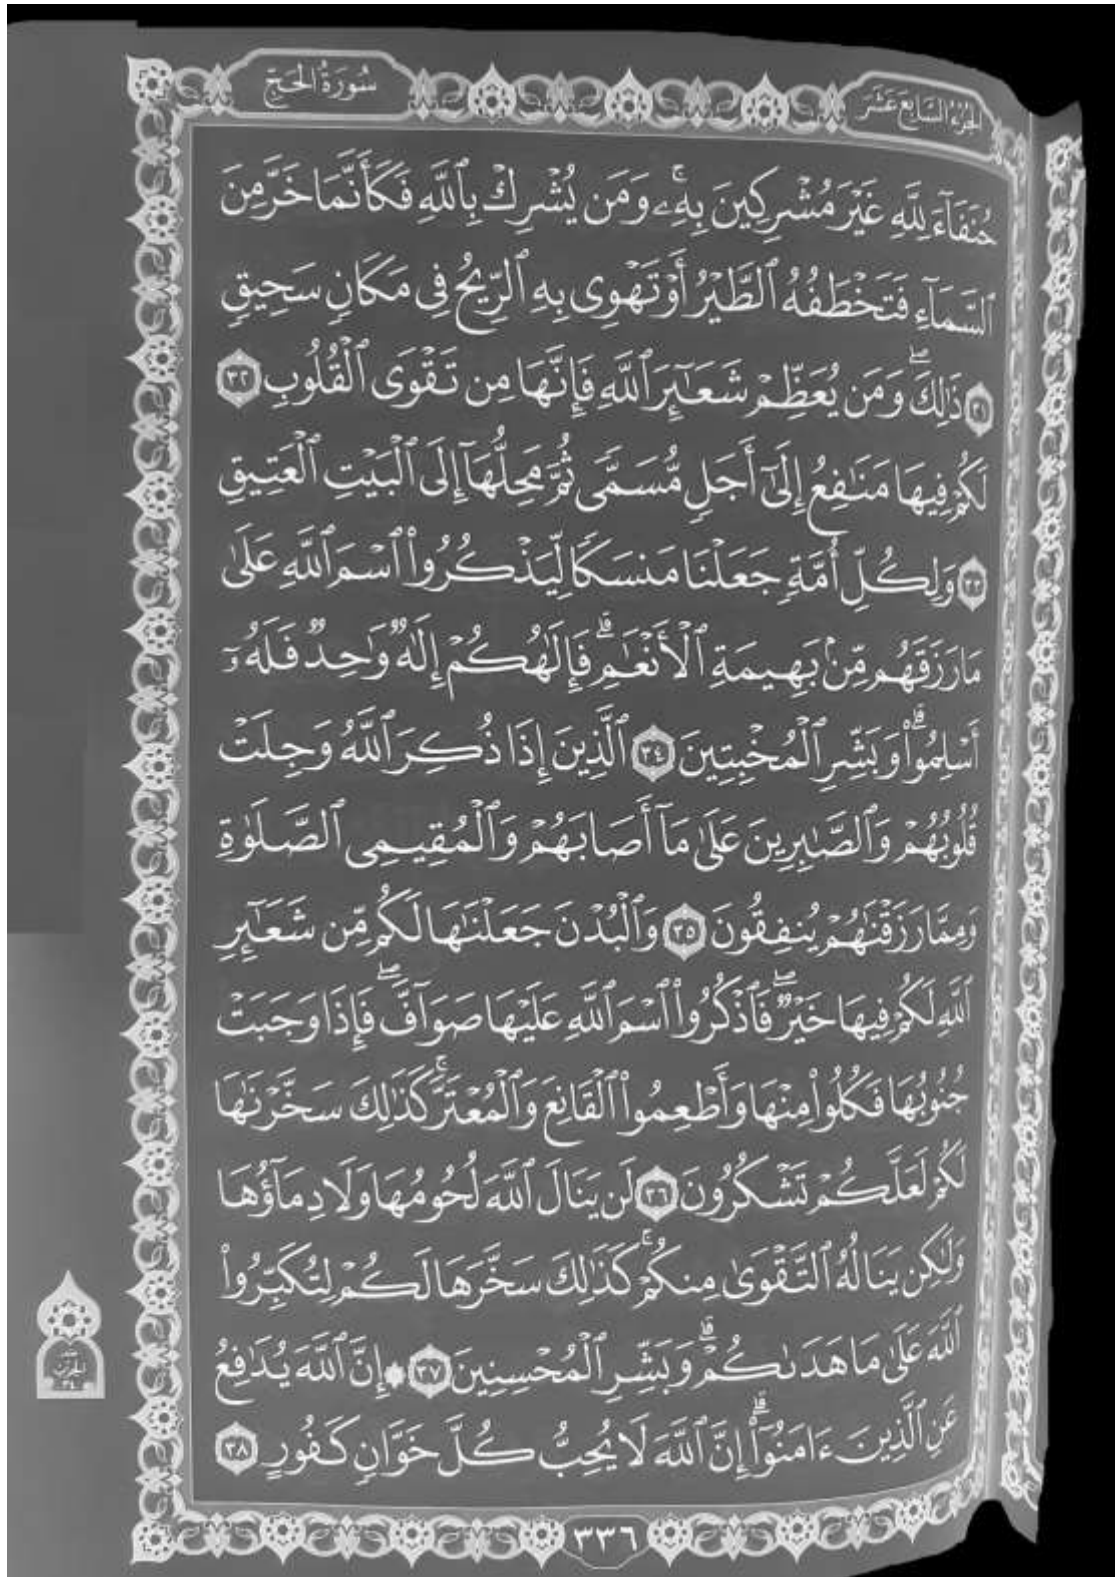 الجزء السابع عشر
سورة الحج
حُنَفَآءَ لِلَّهِ غَيْرَ مُشْرِكِينَ بِهِۦۚ وَمَن يُشْرِكْ بِٱللَّهِ فَكَأَنَّمَا خَرَّ مِنَ
ٱلسَّمَآءِ فَتَخْطَفُهُ ٱلطَّيْرُ أَوْ تَهْوِى بِهِ ٱلرِّيحُ فِى مَكَانٍ سَحِيقٍ
٣١ ذَٰلِكَۖ وَمَن يُعَظِّمْ شَعَٰٓئِرَ ٱللَّهِ فَإِنَّهَا مِن تَقْوَى ٱلْقُلُوبِ ٣٢
لَكُمْ فِيهَا مَنَٰفِعُ إِلَىٰٓ أَجَلٍ مُّسَمًّى ثُمَّ مَحِلُّهَآ إِلَى ٱلْبَيْتِ ٱلْعَتِيقِ
٣٣ وَلِكُلِّ أُمَّةٍ جَعَلْنَا مَنسَكًا لِّيَذْكُرُوا۟ ٱسْمَ ٱللَّهِ عَلَىٰ
مَا رَزَقَهُم مِّنۢ بَهِيمَةِ ٱلْأَنْعَٰمِۗ فَإِلَٰهُكُمْ إِلَٰهٌ وَٰحِدٌ فَلَهُۥٓ
أَسْلِمُوا۟ۗ وَبَشِّرِ ٱلْمُخْبِتِينَ ٣٤ ٱلَّذِينَ إِذَا ذُكِرَ ٱللَّهُ وَجِلَتْ
قُلُوبُهُمْ وَٱلصَّٰبِرِينَ عَلَىٰ مَآ أَصَابَهُمْ وَٱلْمُقِيمِى ٱلصَّلَوٰةِ
وَمِمَّا رَزَقْنَٰهُمْ يُنفِقُونَ ٣٥ وَٱلْبُدْنَ جَعَلْنَٰهَا لَكُم مِّن شَعَٰٓئِرِ
ٱللَّهِ لَكُمْ فِيهَا خَيْرٌۖ فَٱذْكُرُوا۟ ٱسْمَ ٱللَّهِ عَلَيْهَا صَوَآفَّۖ فَإِذَا وَجَبَتْ
جُنُوبُهَا فَكُلُوا۟ مِنْهَا وَأَطْعِمُوا۟ ٱلْقَانِعَ وَٱلْمُعْتَرَّۚ كَذَٰلِكَ سَخَّرْنَٰهَا
لَكُمْ لَعَلَّكُمْ تَشْكُرُونَ ٣٦ لَن يَنَالَ ٱللَّهَ لُحُومُهَا وَلَا دِمَآؤُهَا
وَلَٰكِن يَنَالُهُ ٱلتَّقْوَىٰ مِنكُمْۚ كَذَٰلِكَ سَخَّرَهَا لَكُمْ لِتُكَبِّرُوا۟
ٱللَّهَ عَلَىٰ مَا هَدَىٰكُمْۗ وَبَشِّرِ ٱلْمُحْسِنِينَ ٣٧ ۞ إِنَّ ٱللَّهَ يُدَٰفِعُ
عَنِ ٱلَّذِينَ ءَامَنُوٓا۟ۗ إِنَّ ٱللَّهَ لَا يُحِبُّ كُلَّ خَوَّانٍ كَفُورٍ ٣٨
الحزب
٣٤
٣٣٦